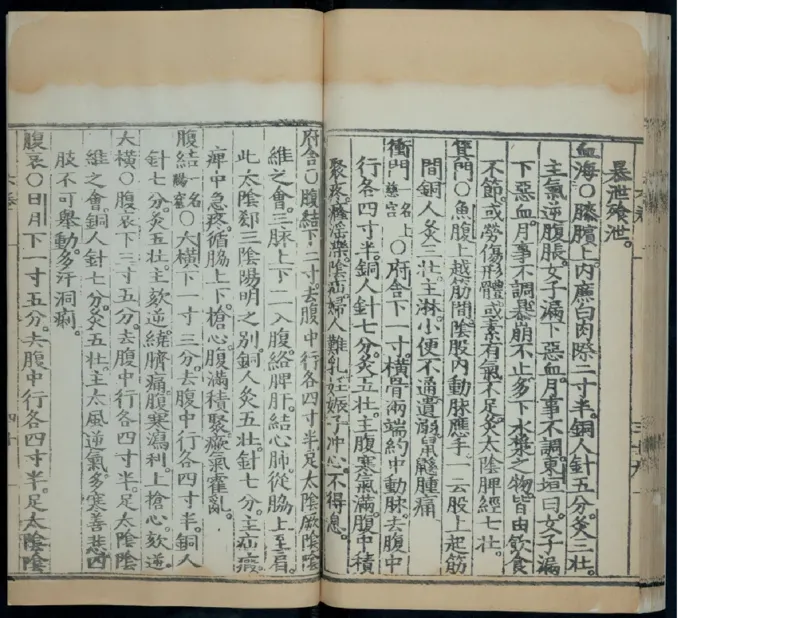 暴泄飱泄。
血海○膝臏上內廉白肉際二寸半。銅人針五分。灸三壯。
主氣逆腹脹。女子漏下惡血。月事不調。東垣曰。女子漏
下惡血。月事不調。暴崩不止。多下水漿之物。皆由飲食
不節。或勞傷形體。或素有氣不足。灸太陰脾經七壯。
箕門○魚腹上越筋間陰股內動脉應手。一云股上起筋
間銅人灸三壯。主淋。小便不通。遺溺。鼠鼷腫痛
衝門一名上慈宮○府舍下一寸。橫骨兩端約中動脉。去腹中
行各四寸半。銅人針七分。灸五壯。主腹寒氣滿。腹中積
聚疼。癃淫濼陰疝。婦人難乳。妊娠子冲心。不得息。
府舍○腹結下二寸。去腹中行各四寸半。足太陰厥陰陰
維之會。三脉上下二入腹。絡脾肝。結心肺。從脇上至肩。
此太陰郄三陰陽明之別。銅人灸五壯。針七分。主疝瘕。
痺中急疼。循脇上下。搶心。腹滿積聚。厥氣霍亂。
腹結一名腸窟○大橫下一寸三分。去腹中行各四寸半。銅人
針七分。灸五壯。主欬逆。繞臍痛。腹寒瀉利。上搶心。欬逆。
大橫○腹哀下三寸五分。去腹中行各四寸半。足太陰陰
維之會。銅人針七分。灸五壯。主大風逆氣。多寒善悲。四
肢不可舉動。多汗洞痢。
腹哀○日月下一寸五分。去腹中行各四寸半。足太陰陰